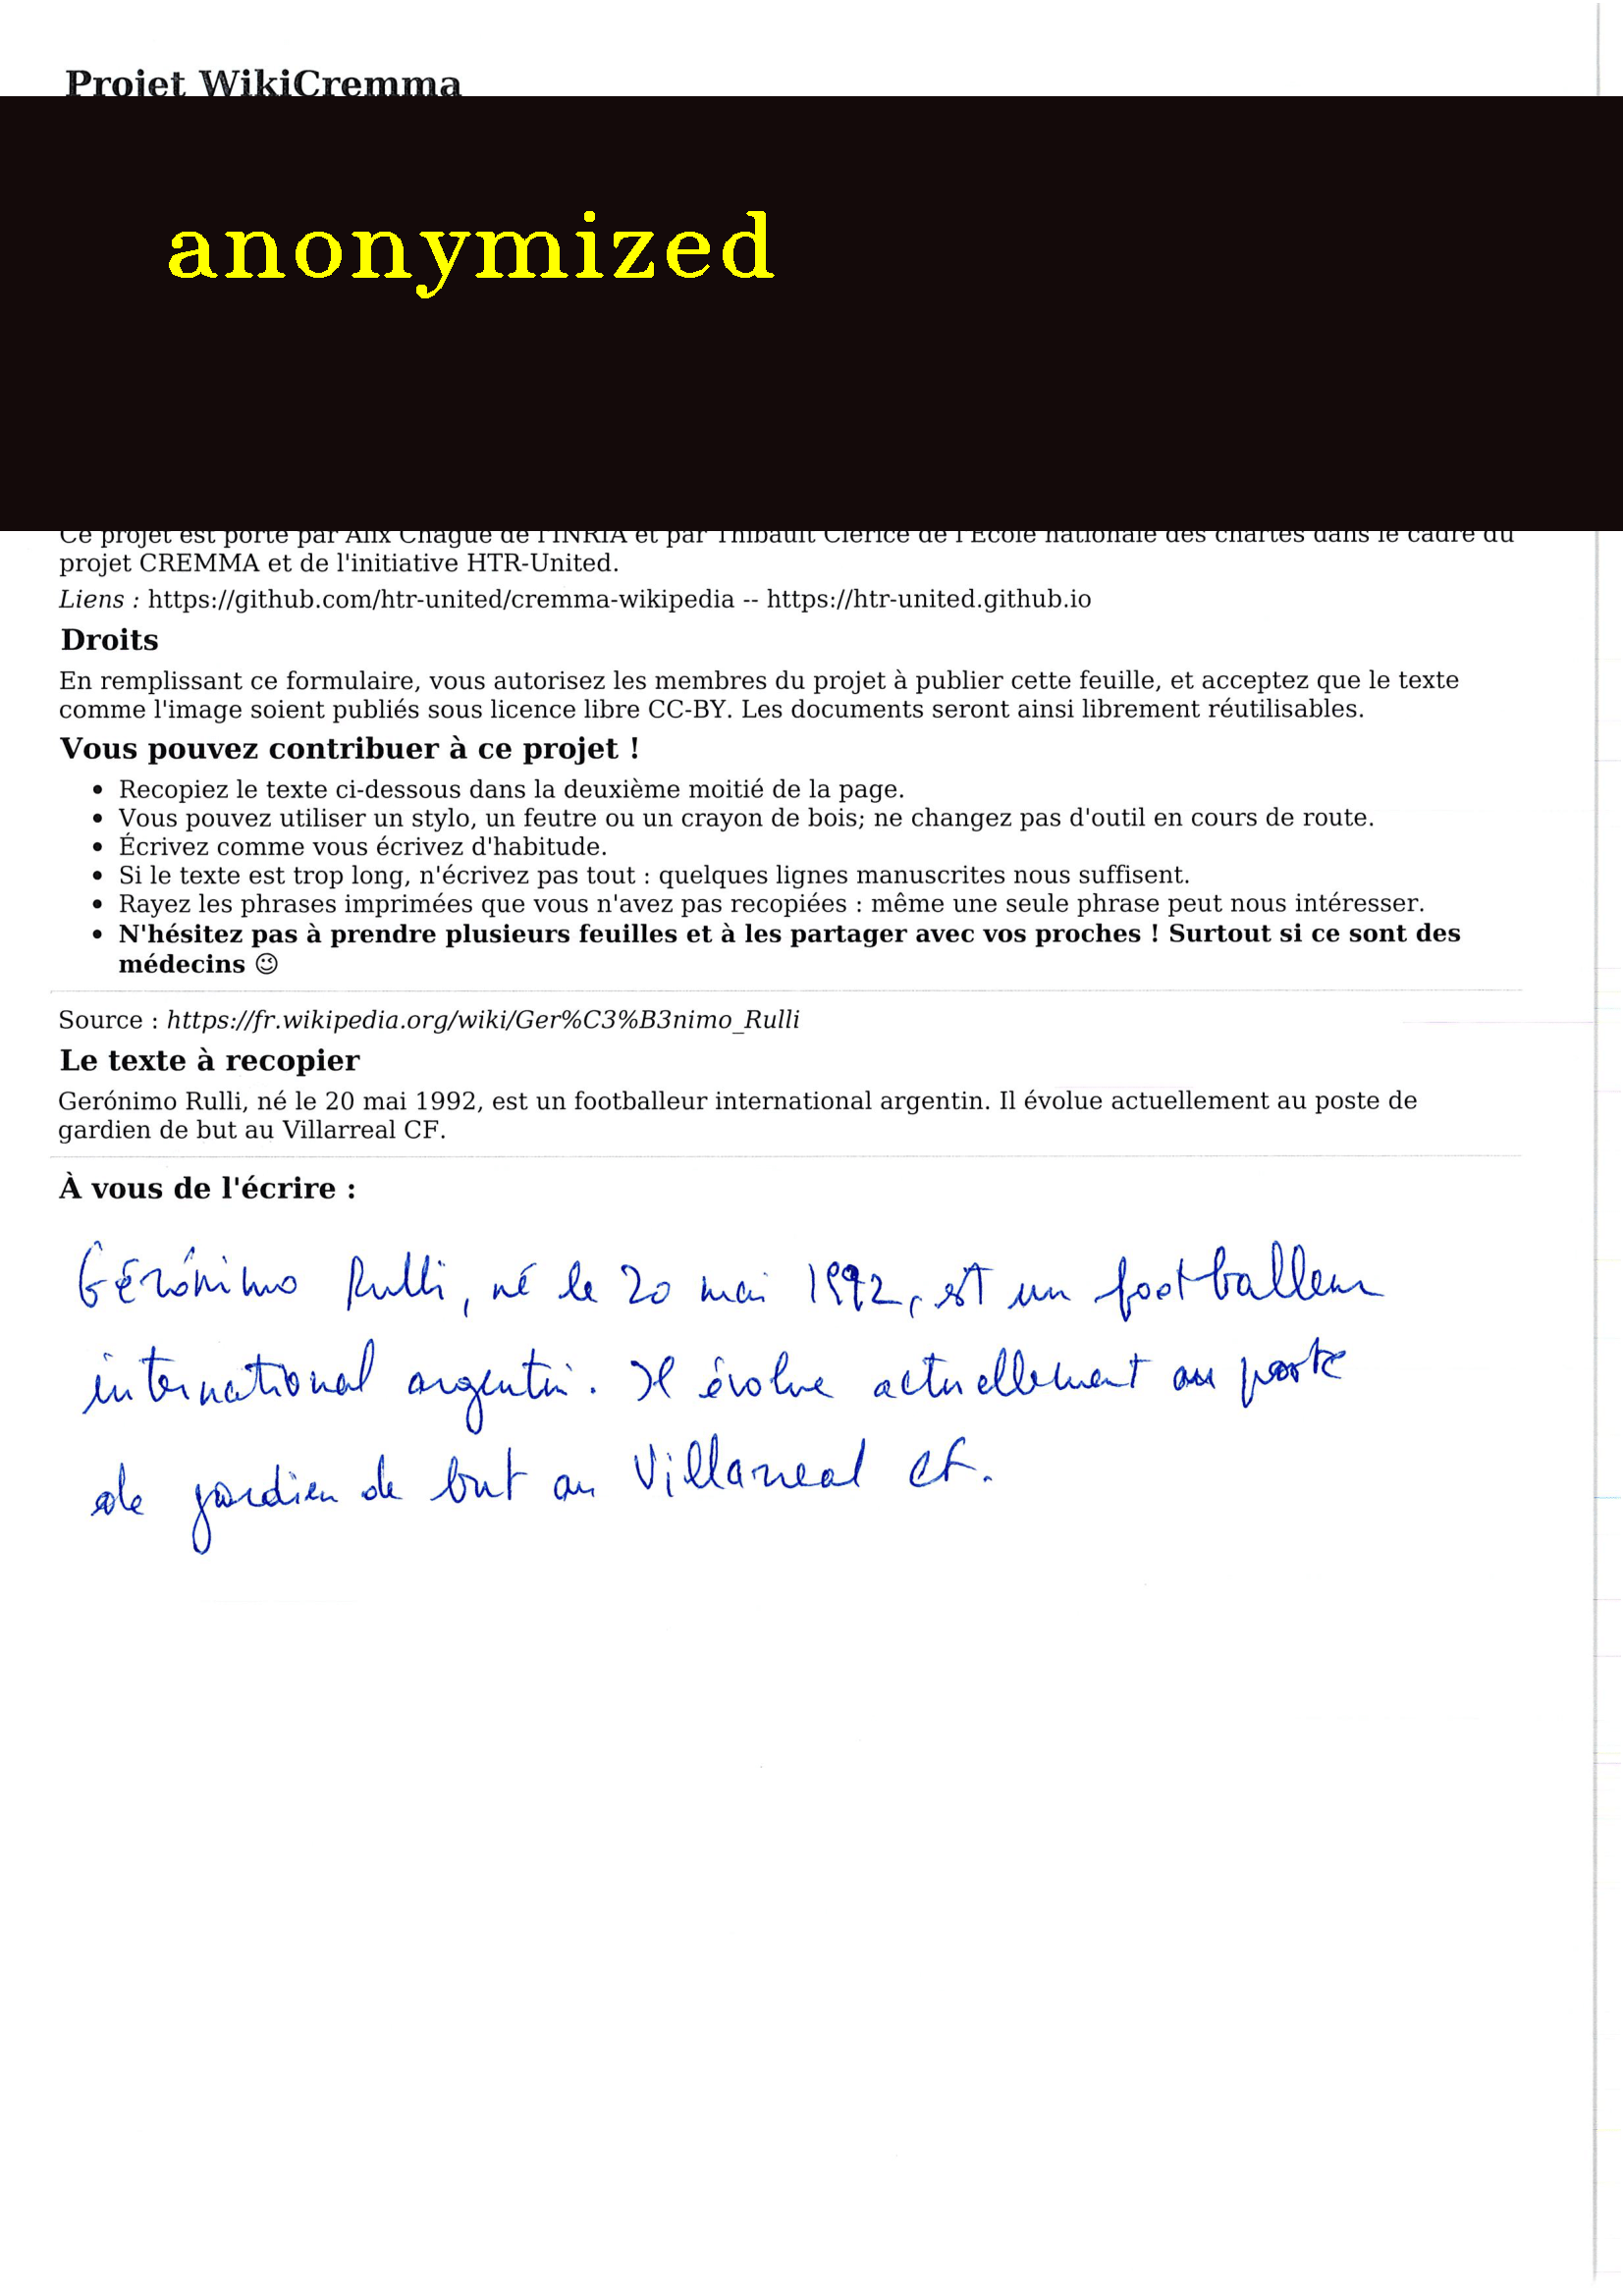 Projet WikiCremma
anonymized
Ce projet est porté par Alix Chagué de l'INRIA et par Thibault Clérice de l'École nationale des chartes dans le cadre du
projet CREMMA et de l'initiative HTR-United.
Liens : https://github.com/htr-united/cremma-wikipedia -- https://htr-united.github.io
Droits
En remplissant ce formulaire, vous autorisez les membres du projet à publier cette feuille, et acceptez que le texte
comme l'image soient publiés sous licence libre CC-BY. Les documents seront ainsi librement réutilisables.
Vous pouvez contribuer à ce projet !
• Recopiez le texte ci-dessous dans la deuxième moitié de la page.
• Vous pouvez utiliser un stylo, un feutre ou un crayon de bois; ne changez pas d'outil en cours de route.
• Écrivez comme vous écrivez d'habitude.
• Si le texte est trop long, n'écrivez pas tout : quelques lignes manuscrites nous suffisent.
• Rayez les phrases imprimées que vous n'avez pas recopiées : même une seule phrase peut nous intéresser.
• N'hésitez pas à prendre plusieurs feuilles et à les partager avec vos proches ! Surtout si ce sont des
médecins 😉
Source : https://fr.wikipedia.org/wiki/Ger%C3%B3nimo_Rulli
Le texte à recopier
Gerónimo Rulli, né le 20 mai 1992, est un footballeur international argentin. Il évolue actuellement au poste de
gardien de but au Villarreal CF.
À vous de l'écrire :
Gérónimo Rulli, né le 20 mai 1992, est un footballeur
international argentin. Il évolue actuellement au poste
de gardien de but au Villarreal CF.